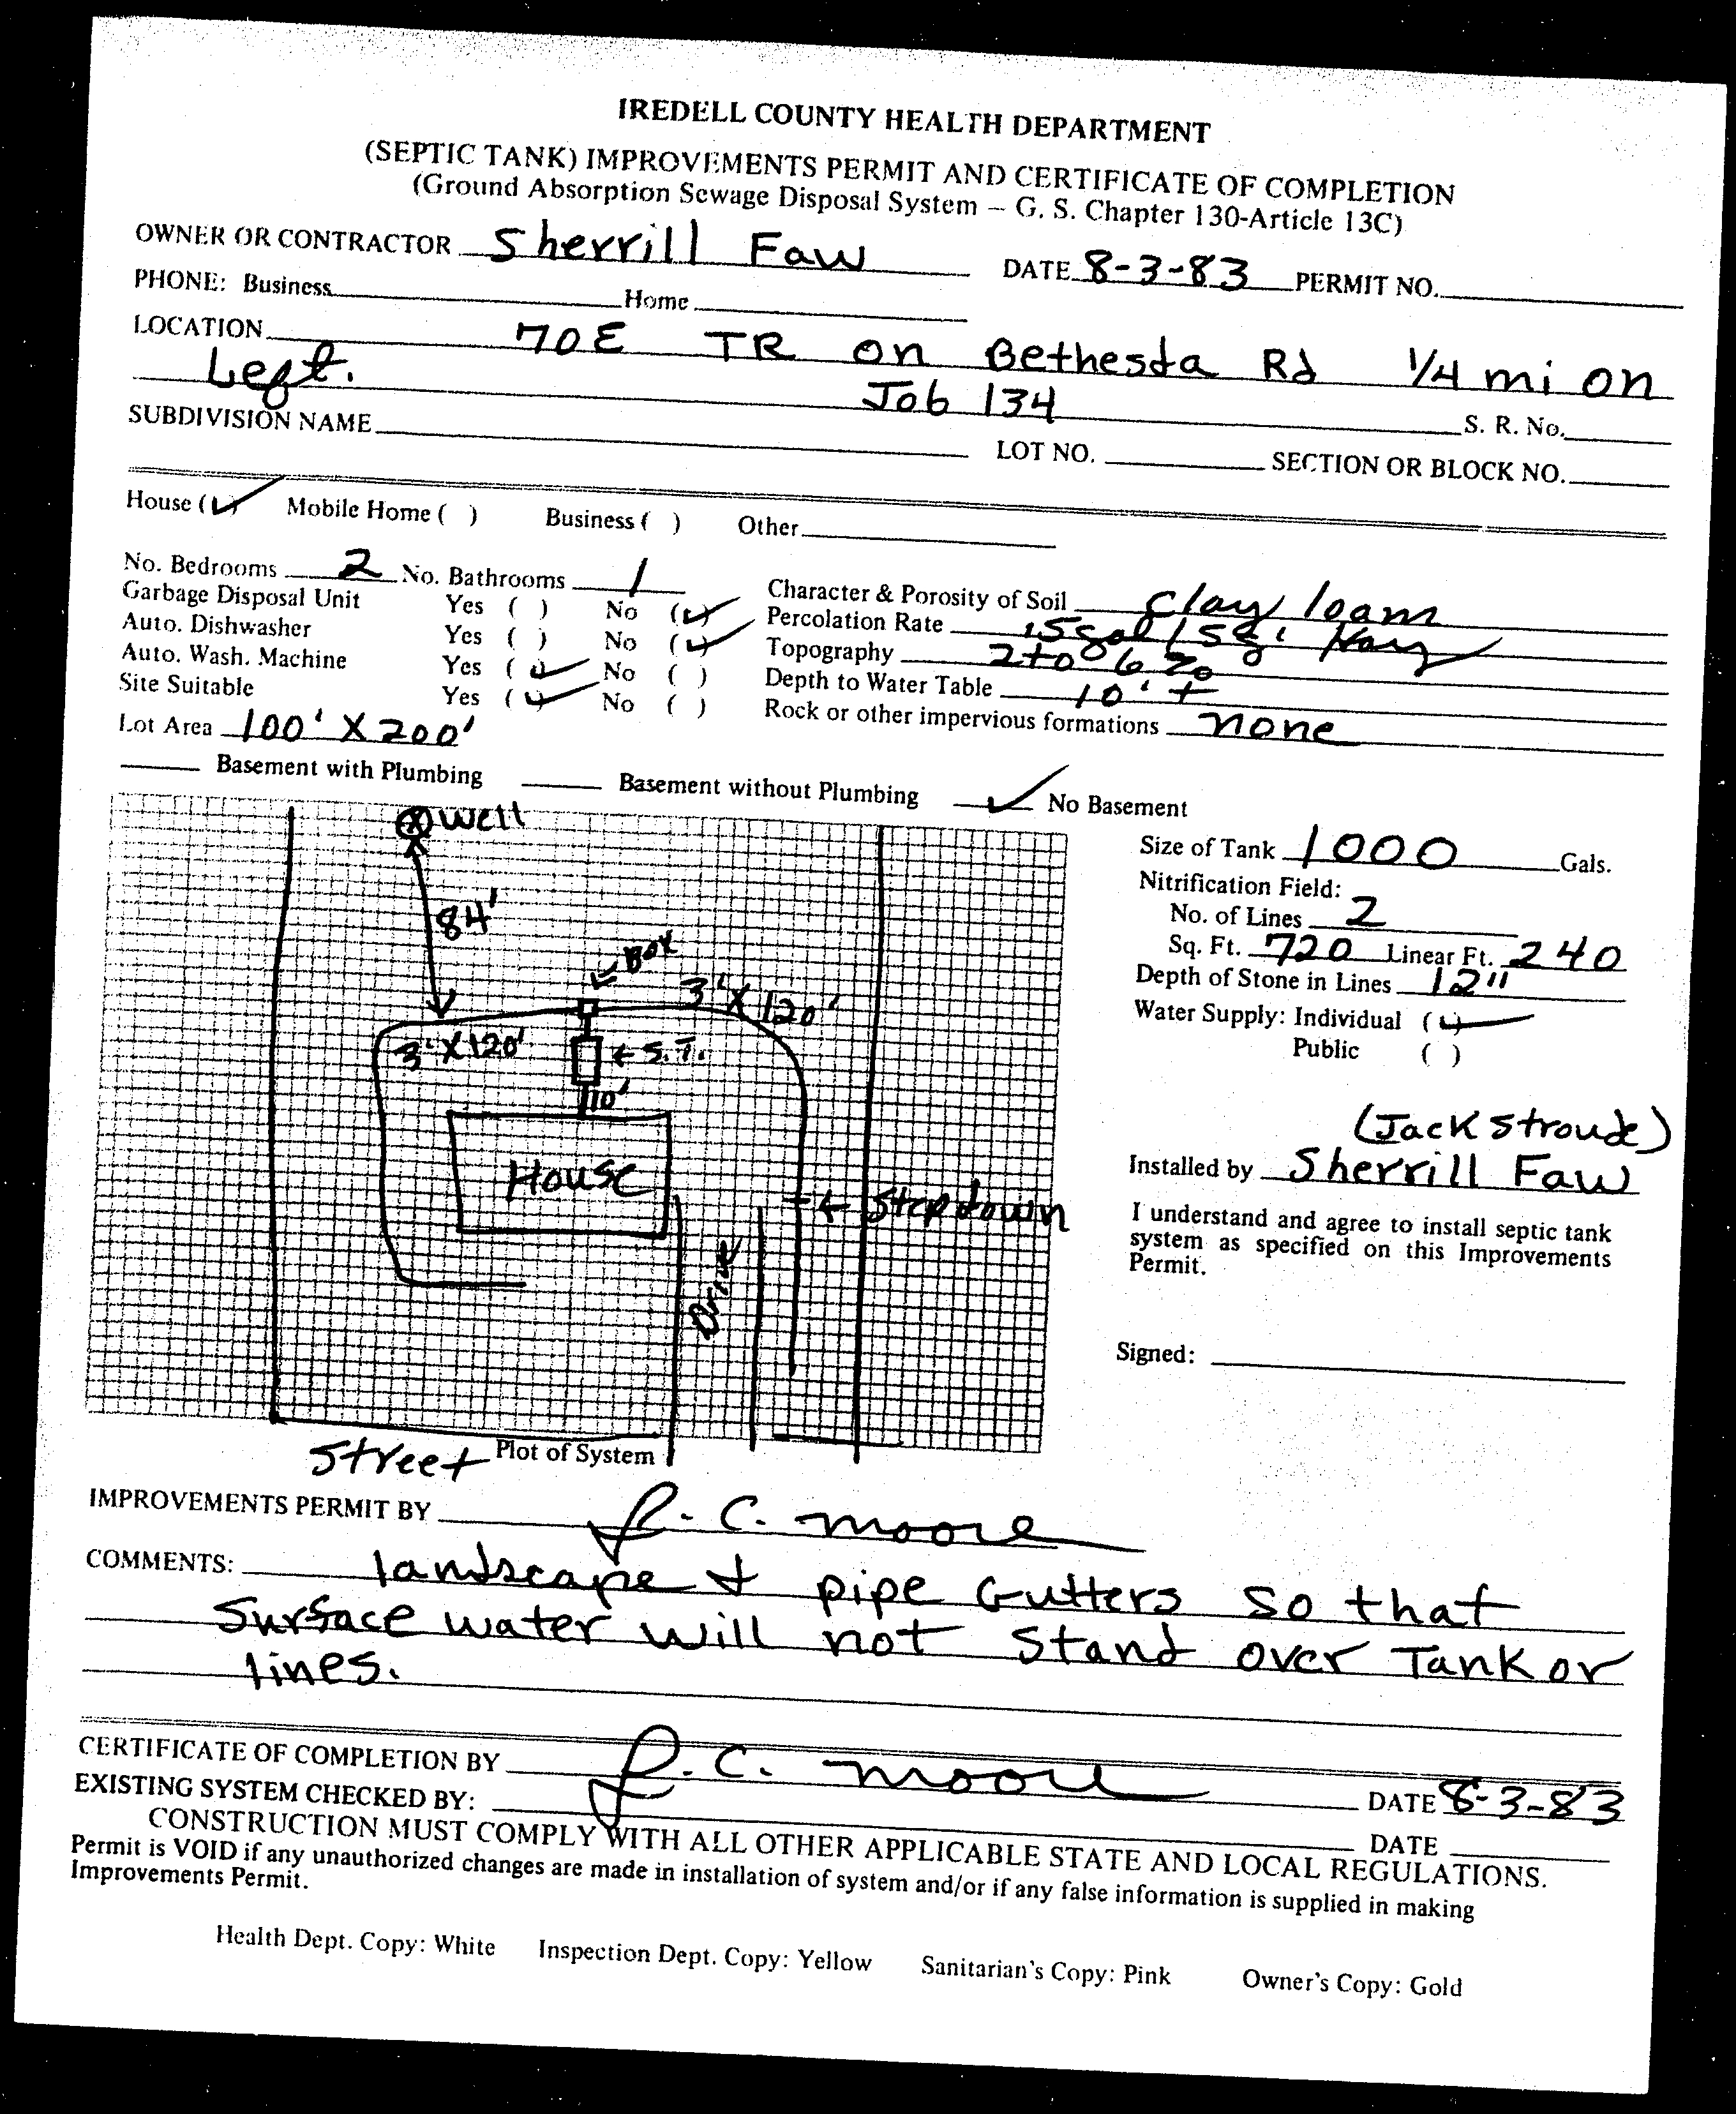 IREDELL COUNTY HEALTH DEPARTMENT
(SEPTIC TANK) IMPROVEMENTS PERMIT AND CERTIFICATE OF COMPLETION
(Ground Absorption Sewage Disposal System – G. S. Chapter 130-Article 13C)
OWNER OR CONTRACTOR Sherrill Faw DATE 8-3-83 PERMIT NO.
PHONE: Business Home
LOCATION 70E TR on Bethesda Rd 1/4 mi on
Left. Job 134 S. R. No.
SUBDIVISION NAME LOT NO. SECTION OR BLOCK NO.
House (✓) Mobile Home ( ) Business ( ) Other
No. Bedrooms 2 No. Bathrooms 1
Garbage Disposal Unit Yes ( ) No (✓)
Auto. Dishwasher Yes ( ) No (✓)
Auto. Wash. Machine Yes (✓) No ( )
Site Suitable Yes (✓) No ( )
Lot Area 100' X 200'
Character & Porosity of Soil Clay loam
Percolation Rate
Topography 2 to 6 %
Depth to Water Table 10' +
Rock or other impervious formations none
Basement with Plumbing Basement without Plumbing ✓ No Basement
Well
84'
Box
3' X 120'
3' X 120'
S.T.
10'
House
Stepdown
Drive
Street Plot of System
Size of Tank 1000 Gals.
Nitrification Field:
No. of Lines 2
Sq. Ft. 720 Linear Ft. 240
Depth of Stone in Lines 12"
Water Supply: Individual (✓)
Public ( )
(Jack Stroude)
Installed by Sherrill Faw
I understand and agree to install septic tank
system as specified on this Improvements
Permit.
Signed:
IMPROVEMENTS PERMIT BY J. C. Moore
COMMENTS: landscape + pipe Gutters so that
Surface water will not Stand over Tank or
lines.
CERTIFICATE OF COMPLETION BY J. C. Moore DATE 8-3-83
EXISTING SYSTEM CHECKED BY: DATE
CONSTRUCTION MUST COMPLY WITH ALL OTHER APPLICABLE STATE AND LOCAL REGULATIONS.
Permit is VOID if any unauthorized changes are made in installation of system and/or if any false information is supplied in making
Improvements Permit.
Health Dept. Copy: White Inspection Dept. Copy: Yellow Sanitarian's Copy: Pink Owner's Copy: Gold